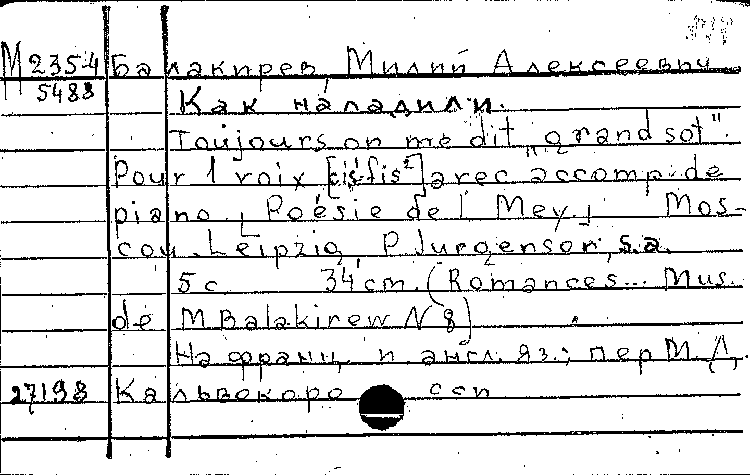 М 2354 Балакирев, Милий Алексеевич
5488 Как наладили.
Toujours on me dit „grand sot".
Pour 1 voix [cis¹-fis²] avec accomp. de
piano. Poésie de L Mey. Mos-
cou. Leipzig, P. Jurgenson, s.a.
5 с. 34 cm. (Romances... Mus.
de M Balakirew N 8)
На франц. и англ. яз.; пер М. Д.
27198 Кальвокоро сси